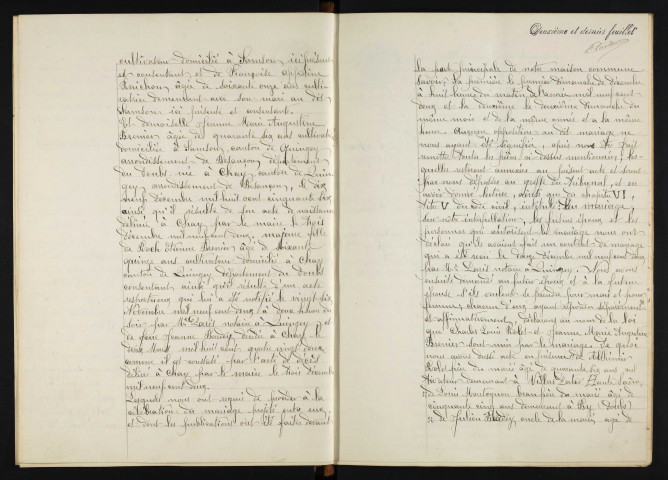 cultivateur domicilié à Samson, ici présent
et consentant, et de Françoise
âgée de soixante onze ans culti-
vatrice demeurant avec son mari au dit
Samson ici présente et consentante.
Et demoiselle Jeanne Marie Augustine
Bernier âgée de quarante six ans cultivatrice
domiciliée à Samson, canton de Quingey
arrondissement de Besançon, département
du Doubs née à Chay, canton de Quin-
gey arrondissement de Besançon, le dix
mil huit cent cinquante six
ainsi qu'il résulte de son acte de naissance
délivré à Chay par le maire le trois
décembre mil neuf cent deux, majeure fille
de Etienne Bernier âgé de soixante
quinze ans cultivateur domicilié à Chay
canton de Quingey département du Doubs
consentant ainsi qu'il résulte d'un acte
respectueux qui lui a été notifié le vingt six
Novembre mil neuf cent deux à deux heures du
soir par Me Louis notaire à Quingey et
de Jeanne décédée à Chay le
deux Mars mil huit cent quatre vingt deux
comme il est constaté par l'acte de décès
délivré à Chay par le maire le trois décembre
mil neuf cent deux.
Lesquels nous ont requis de procéder à la
célébration du mariage projeté entre eux,
et dont les publications ont été faites devant
Deuxième et dernier feuillet
la porte principale de notre maison commune
savoir: la première le premier dimanche de décembre
à huit heures du matin de l'année mil neuf cent
deux et la deuxième le deuxième dimanche du
même mois et de la même année et à la même
heure. Aucune opposition au dit mariage ne
nous ayant été signifiée, après nous être fait
remettre toutes les pièces ci-dessus mentionnées, les-
quelles resteront annexées au présent acte et seront
par nous déposées au greffe du Tribunal, et en
avoir donné lecture, ainsi que du chapitre VI,
titre V du code civil, intitulé du mariage,
sur notre interpellation, les futurs époux et les
personnes qui autorisent le mariage nous ont
déclaré qu'ils avaient fait un contrat de mariage
qui a été reçu le douze décembre mil neuf cent deux
par Me Louis notaire à Quingey. Nous avons
ensuite demandé au futur époux et à la future
épouse s'ils veulent se prendre pour mari et pour
femme; chacun d'eux ayant répondu séparément
et affirmativement, déclarons au nom de la loi
que Charles Louis et Jeanne Marie Augustine
Bernier sont unis par le mariage. De quoi
nous avons dressé acte en présence de
frère du marié âgé de quarante six ans cul-
tivateur demeurant à Haute Saône,
de Louis beau frère du marié âgé de
cinquante cinq ans demeurant à By (Doubs)
de Julien oncle de la mariée, âgé de